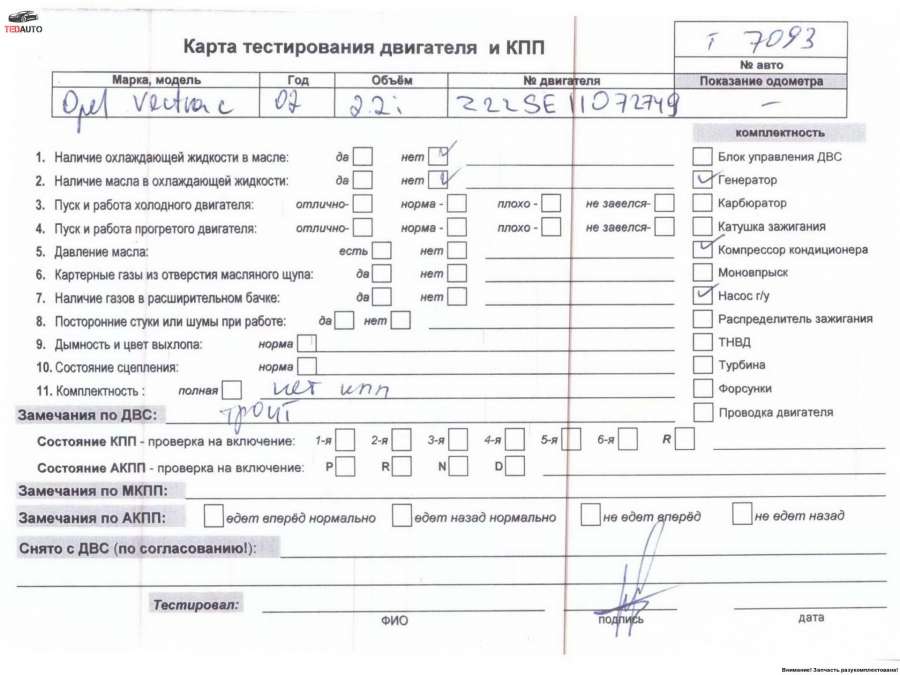 TEDAUTO
Карта тестирования двигателя и КПП
т 7093
№ авто
Марка, модель Год Объём № двигателя Показание одометра
Opel Vectra c 02 2.2i Z22SE 11072749 —
комплектность
1. Наличие охлаждающей жидкости в масле: да нет
Блок управления ДВС
2. Наличие масла в охлаждающей жидкости: да нет
Генератор
3. Пуск и работа холодного двигателя: отлично- норма - плохо - не завелся-
Карбюратор
4. Пуск и работа прогретого двигателя: отлично- норма - плохо - не завелся-
Катушка зажигания
5. Давление масла: есть нет
Компрессор кондиционера
6. Картерные газы из отверстия масляного щупа: да нет
Моновпрыск
7. Наличие газов в расширительном бачке: да нет
Насос г/у
8. Посторонние стуки или шумы при работе: да нет
Распределитель зажигания
9. Дымность и цвет выхлопа: норма
ТНВД
10. Состояние сцепления: норма
Турбина
11. Комплектность : полная нет кпп
Форсунки
Замечания по ДВС: троит
Проводка двигателя
Состояние КПП - проверка на включение: 1-я 2-я 3-я 4-я 5-я 6-я R
Состояние АКПП - проверка на включение: P R N D
Замечания по МКПП:
Замечания по АКПП: едет вперёд нормально едет назад нормально не едет вперёд не едет назад
Снято с ДВС (по согласованию!):
Тестировал:
ФИО подпись дата
Внимание! Запчасть разукомплектована!